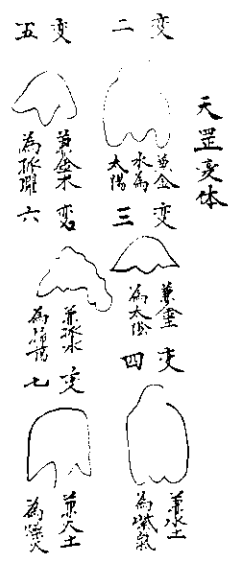 天罡変体
二変
兼金
水為
太陽
三変
兼金土
為太陰
四变
兼水土
為紫氣
五変
兼金木
為孤曜
六変
為掃蕩
七变
兼火土
為燥火